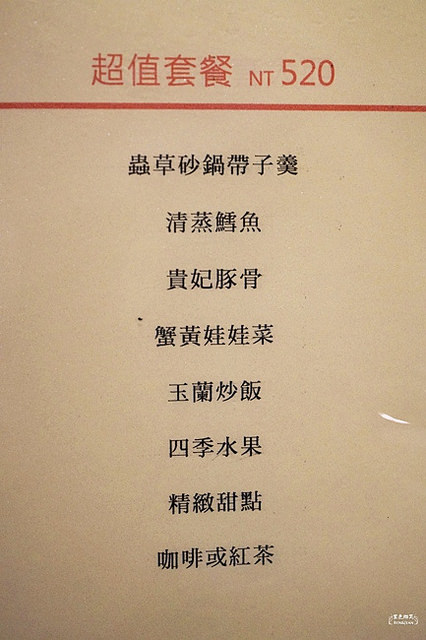 超值套餐 NT 520
蟲草砂鍋帶子羹
清蒸鱈魚
貴妃豚骨
蟹黃娃娃菜
玉蘭炒飯
四季水果
精緻甜點
咖啡或紅茶